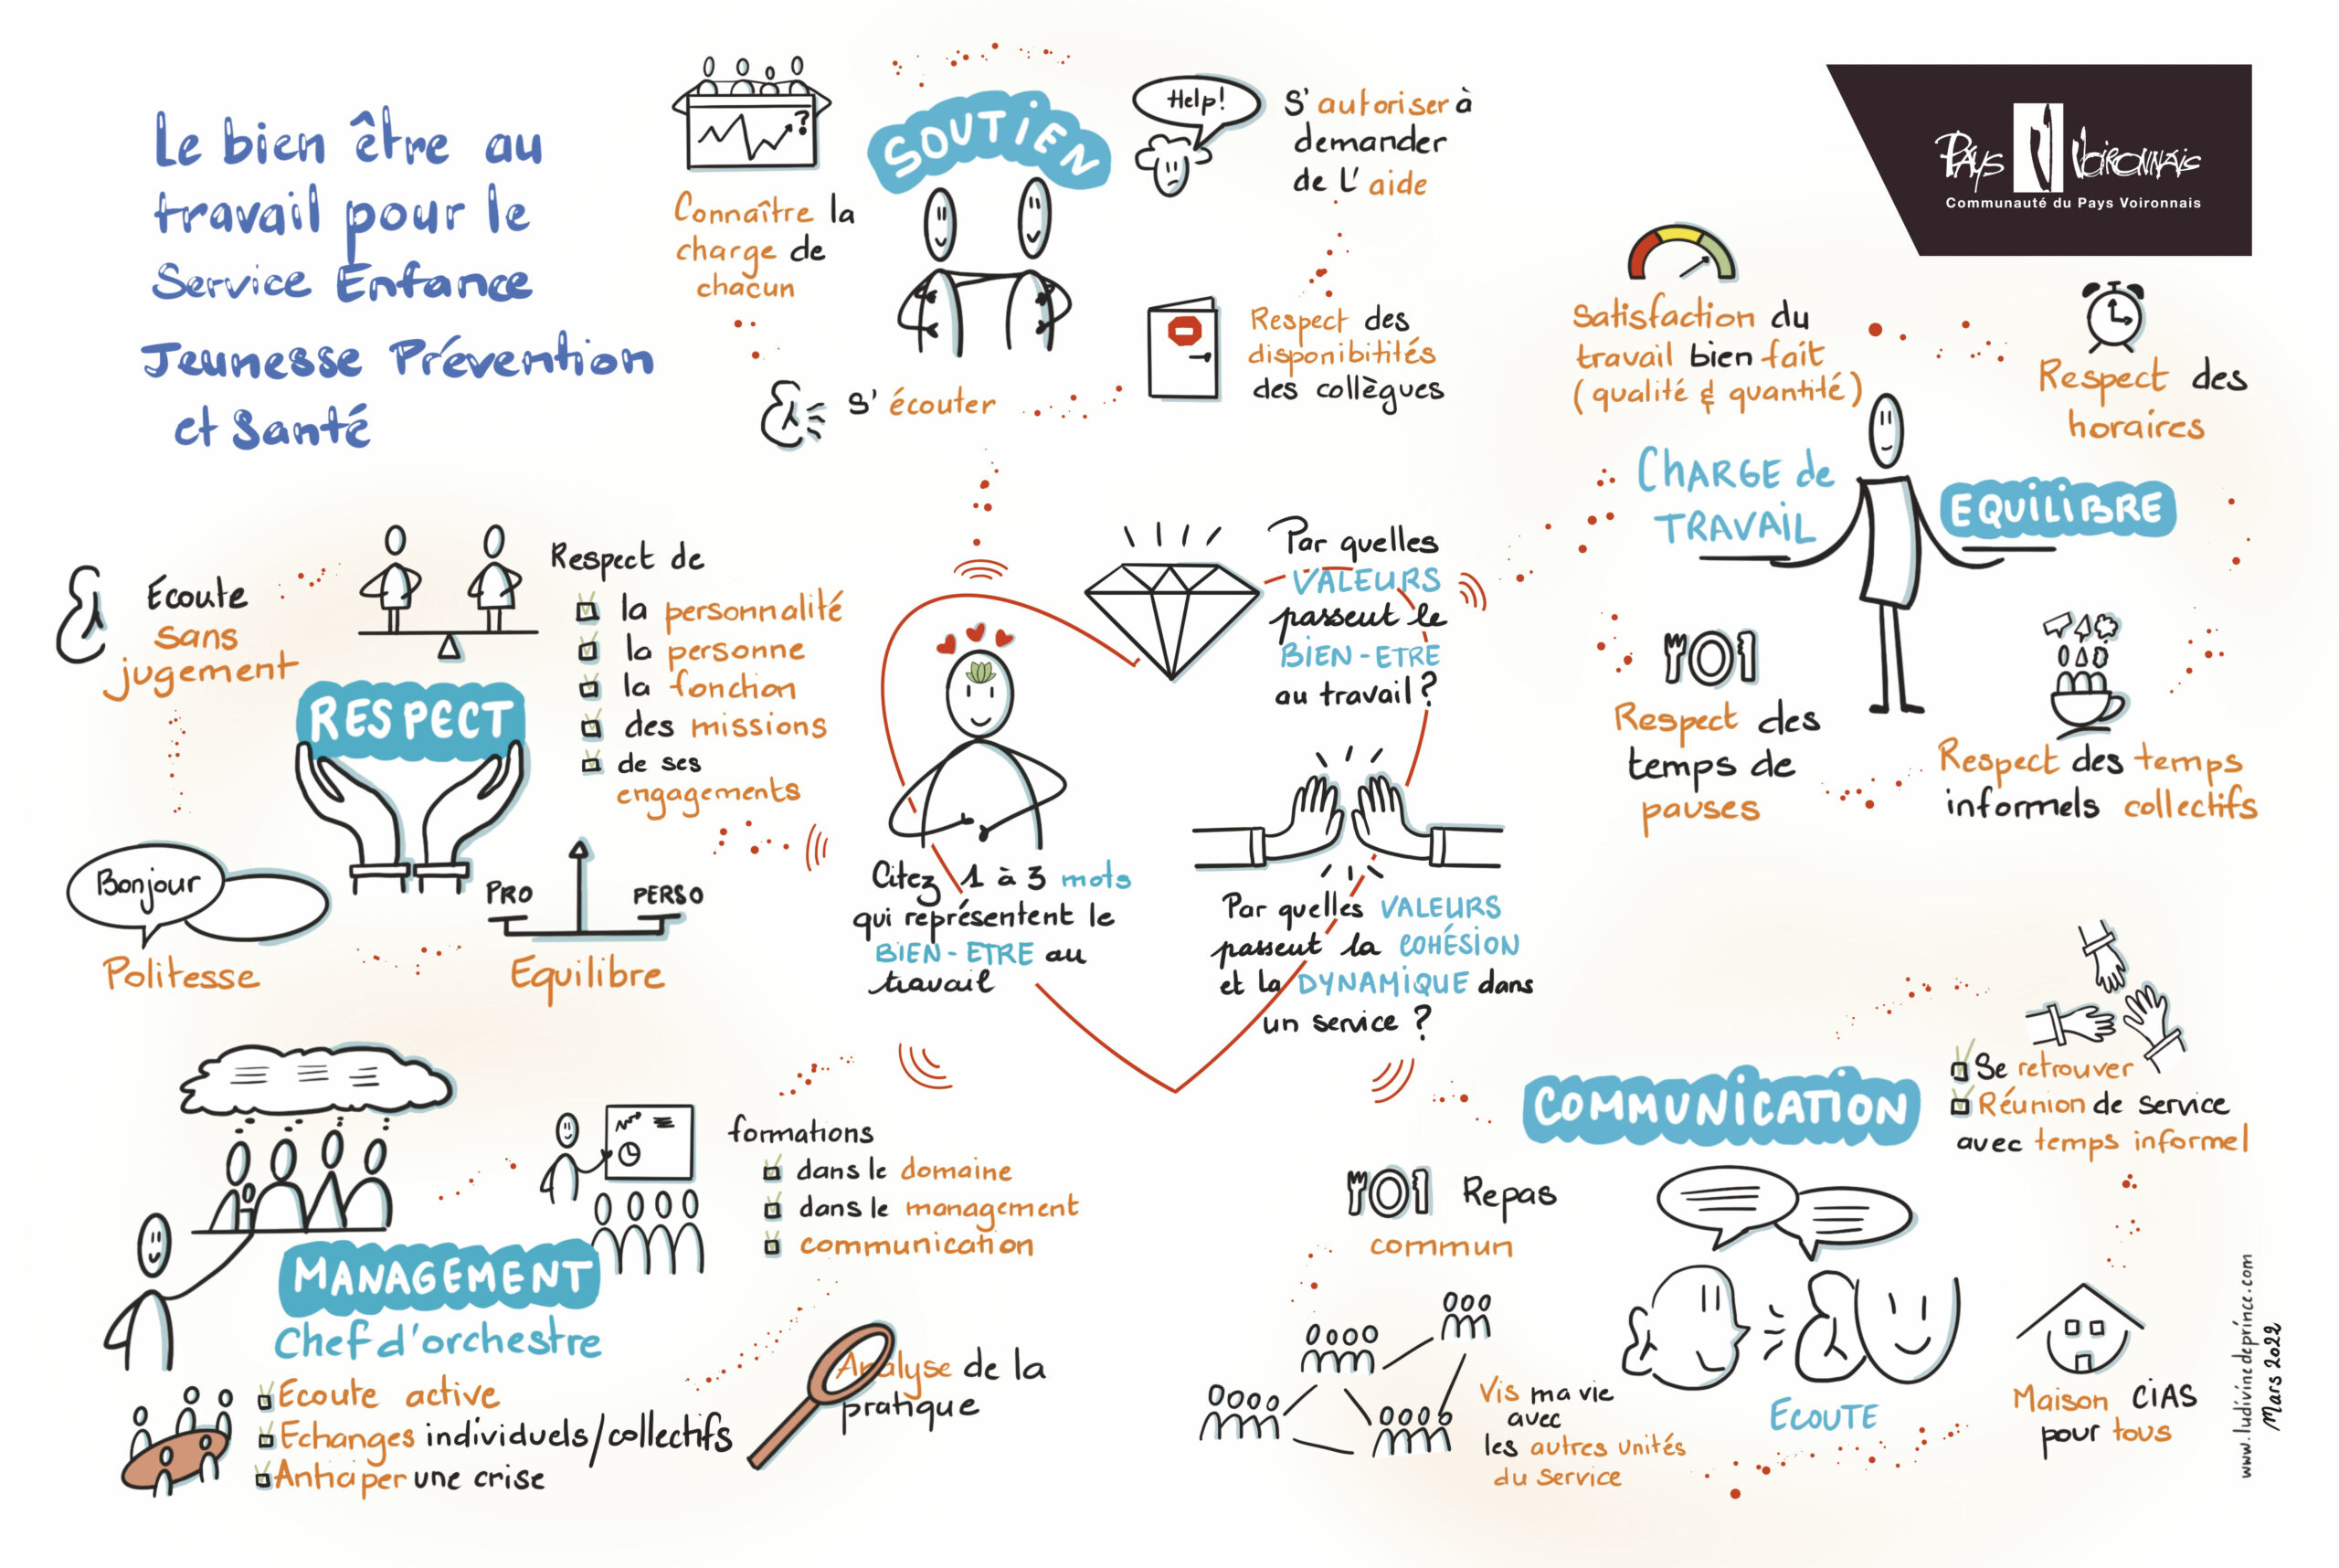 Le bien être au
travail pour le
Service Enfance
Jeunesse Prévention
et Santé
?
Connaître la
charge de
chacun
SOUTIEN
Help!
S'autoriser à
demander
de L'aide
Respect des
disponibitités
des collègues
S'écouter
PAYS VOIRONNAIS
Communauté du Pays Voironnais
Satisfaction du
travail bien fait
(qualité & quantité)
Respect des
horaires
CHARGE de
TRAVAIL
EQUILIBRE
Respect des
temps de
pauses
Respect des temps
informels collectifs
Ecoute
sans
jugement
Respect de
la personnalité
la personne
la fonction
des missions
de ses
engagements
RESPECT
Bonjour
Politesse
PRO
PERSO
Equilibre
Par quelles
VALEURS
passent le
BIEN-ETRE
au travail ?
Citez 1 à 3 mots
qui représentent le
BIEN-ETRE au
travail
Par quelles VALEURS
passent la COHÉSION
et la DYNAMIQUE dans
un service ?
MANAGEMENT
Chef d'orchestre
Ecoute active
Echanges individuels/collectifs
Anticiper une crise
formations
dans le domaine
dans le management
communication
Analyse de la
pratique
COMMUNICATION
Se retrouver
Réunion de service
avec temps informel
Repas
commun
Vis ma vie
avec
les autres unités
du service
ECOUTE
Maison CiAS
pour tous
www.ludivinedeprince.com
Mars 2022